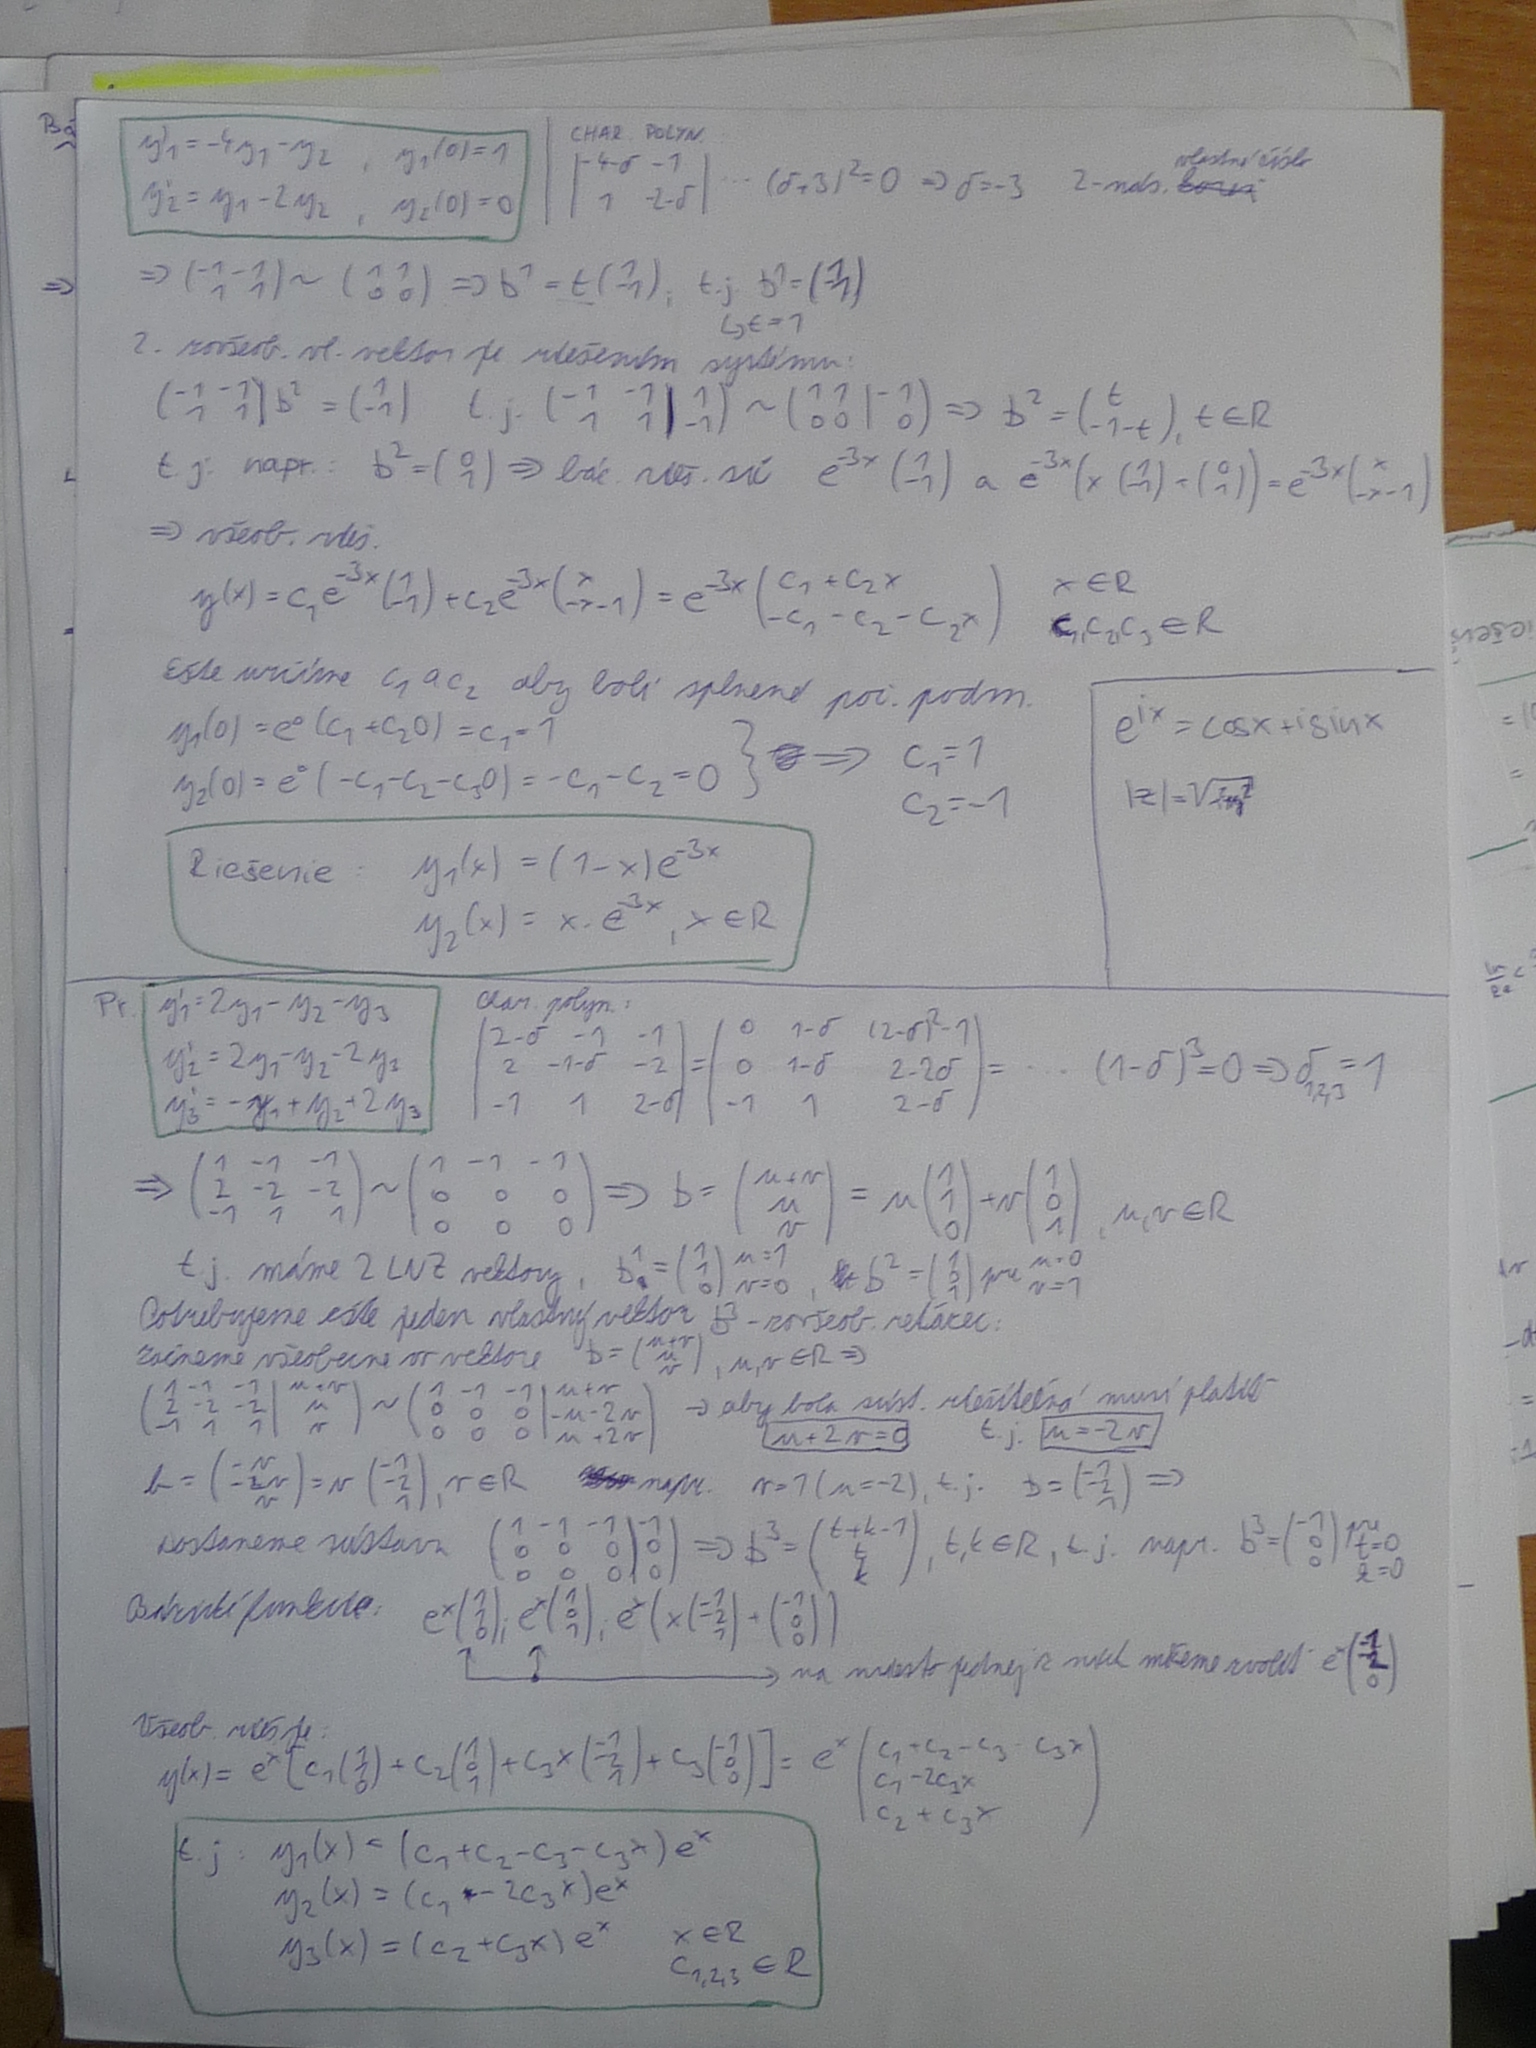 y₁' = -4y₁ - y₂ , y₁(0) = 1
y₂' = y₁ - 2y₂ , y₂(0) = 0
CHAR. POLYN.
|-4-δ -1; 1 -2-δ| ... (δ+3)² = 0 ⇒ δ = -3 2-nás. vlastné číslo
⇒ (-1 -1; 1 1) ~ (1 1; 0 0) ⇒ b¹ = t(1; -1), t.j. b¹ = (1; -1)
↳ t = 1
2. zovšeob. vl. vektor je riešením systému:
(-1 -1; 1 1) b² = (1; -1) t.j. (-1 -1 | 1; 1 1 | -1) ~ (1 1 | -1; 0 0 | 0) ⇒ b² = (t; -1-t), t ∈ R
t.j. napr.: b² = (0; 1) ⇒ báz. rieš. sú e^{-3x} (1; -1) a e^{-3x}(x (1; -1) - (0; 1)) = e^{-3x} (x; -x-1)
⇒ všeob. rieš.
y(x) = c₁e^{-3x}(1; -1) + c₂e^{-3x}(x; -x-1) = e^{-3x} (c₁ + c₂x; -c₁ - c₂ - c₂x) x ∈ R
c₁,c₂,c₃ ∈ R
Ešte určíme c₁ a c₂ aby boli splnené poč. podm.
y₁(0) = e⁰ (c₁ + c₂0) = c₁ = 1
y₂(0) = e⁰ (-c₁ - c₂ - c₃0) = -c₁ - c₂ = 0 } ⇒ c₁ = 1
c₂ = -1
e^{ix} = cosx + isinx
|z| =
Riešenie : y₁(x) = (1-x)e^{-3x}
y₂(x) = x . e^{-3x}, x ∈ R
Pr. y₁' = 2y₁ - y₂ - y₃
y₂' = 2y₁ - y₂ - 2y₃
y₃' = -y₁ + y₂ + 2y₃
Char. polyn.:
|2-δ -1 -1; 2 -1-δ -2; -1 1 2-δ| = |0 1-δ (2-δ)²-1; 0 1-δ 2-2δ; -1 1 2-δ| = ... (1-δ)³ = 0 ⇒ δ₁,₂,₃ = 1
⇒ (1 -1 -1; 2 -2 -2; -1 1 1) ~ (1 -1 -1; 0 0 0; 0 0 0) ⇒ b = (u+v; u; v) = u(1; 1; 0) + v(1; 0; 1), u,v ∈ R
t.j. máme 2 LNZ vektory, b¹ = (1; 1; 0) u=1 v=0, b² = (1; 0; 1) pre u=0 v=1
Potrebujeme ešte jeden vlastný vektor b³ - zovšeob. reťazec:
začneme všeobecne vo vektore b = (u+v; u; v), u,v ∈ R ⇒
(1 -1 -1 | u+v; 2 -2 -2 | u; -1 1 1 | v) ~ (1 -1 -1 | u+v; 0 0 0 | -u-2v; 0 0 0 | u+2v) → aby bola súst. riešiteľná musí platiť
u+2v=0 t.j. u=-2v
b = (-v; -2v; v) = v (-1; -2; 1), v ∈ R napr. v=1 (u=-2), t.j. b = (-1; -2; 1) ⇒
dostaneme sústavu (1 -1 -1 | -1; 0 0 0 | 0; 0 0 0 | 0) ⇒ b³ = (t+k-1; t; k), t,k ∈ R, t.j. napr. b³ = (-1; 0; 0) pre t=0 k=0
Bázické funkcie: e^x(1; 1; 0), e^x(1; 0; 1), e^x(x(-1; -2; 1) + (-1; 0; 0))
→ na miesto jednej z nich môžeme zvoliť e^x(-1; -2; 0)
Všeob. rieš. je:
y(x) = e^x [c₁(1; 1; 0) + c₂(1; 0; 1) + c₃x(-1; -2; 1) + c₃(-1; 0; 0)] = e^x (c₁+c₂-c₃-c₃x; c₁-2c₃x; c₂+c₃x)
t.j: y₁(x) = (c₁+c₂-c₃-c₃x) e^x
y₂(x) = (c₁ - 2c₃x)e^x
y₃(x) = (c₂+c₃x) e^x x ∈ R
c₁,₂,₃ ∈ R